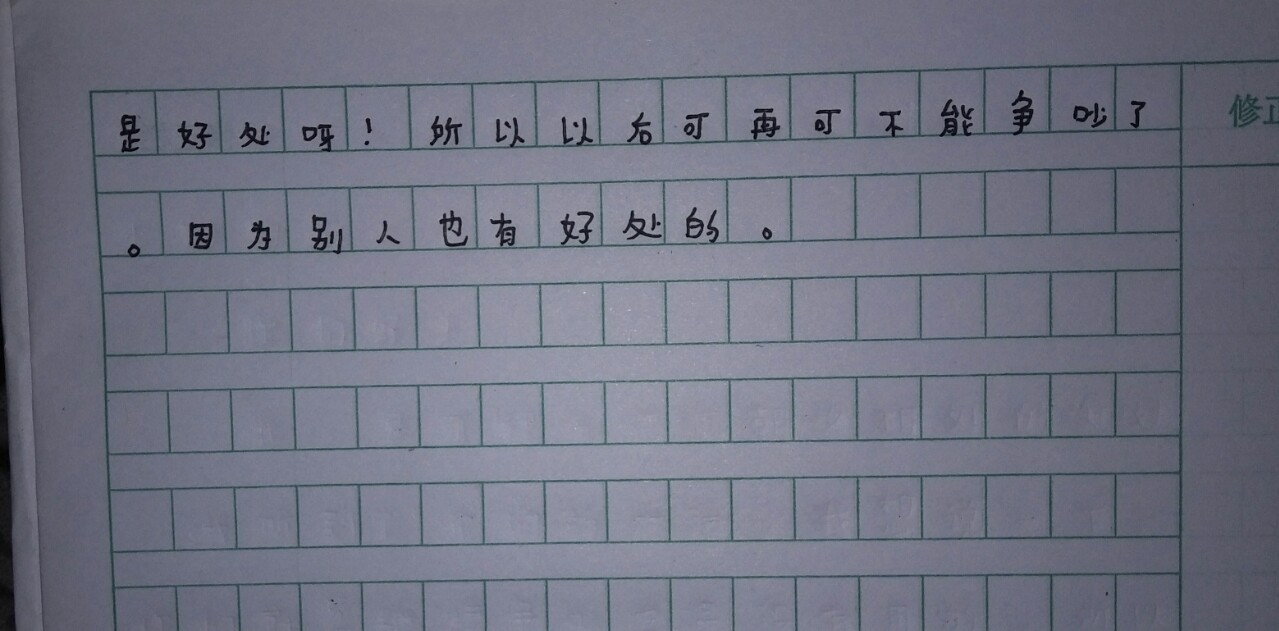 是好处呀！所以以后可再可不能争吵了
。因为别人也有好处的。
修正